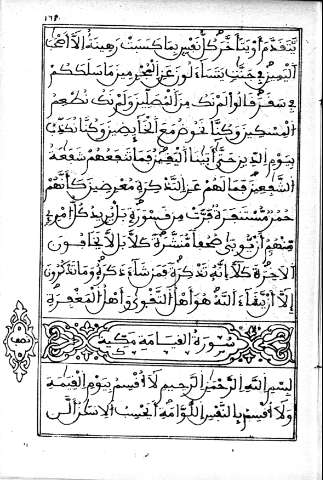 يتقدم أو يتأخر كل نفس بما كسبت رهينة إلا أصحب
اليمين في جنت يتساءلون عن المجرمين ما سلككم
في سقر قالوا لم نك من المصلين ولم نك نطعم
المسكين وكنا نخوض مع الخائضين وكنا نكذب
بيوم الدين حتى أتينا اليقين فما تنفعهم شفعة
الشفعين فما لهم عن التذكرة معرضين كأنهم
حمر مستنفرة فرت من قسورة بل يريد كل امرئ
منهم أن يؤتى صحفا منشرة كلا بل لا يخافون
الاخرة كلا إنه تذكرة فمن شاء ذكره وما تذكرون
إلا أن يشاء الله هو أهل التقوى وأهل المغفرة
سورة القيامة مكية
نصف
بسم الله الرحمن الرحيم لا أقسم بيوم القيمة
ولا أقسم بالنفس اللوامة أيحسب الانسن ألن